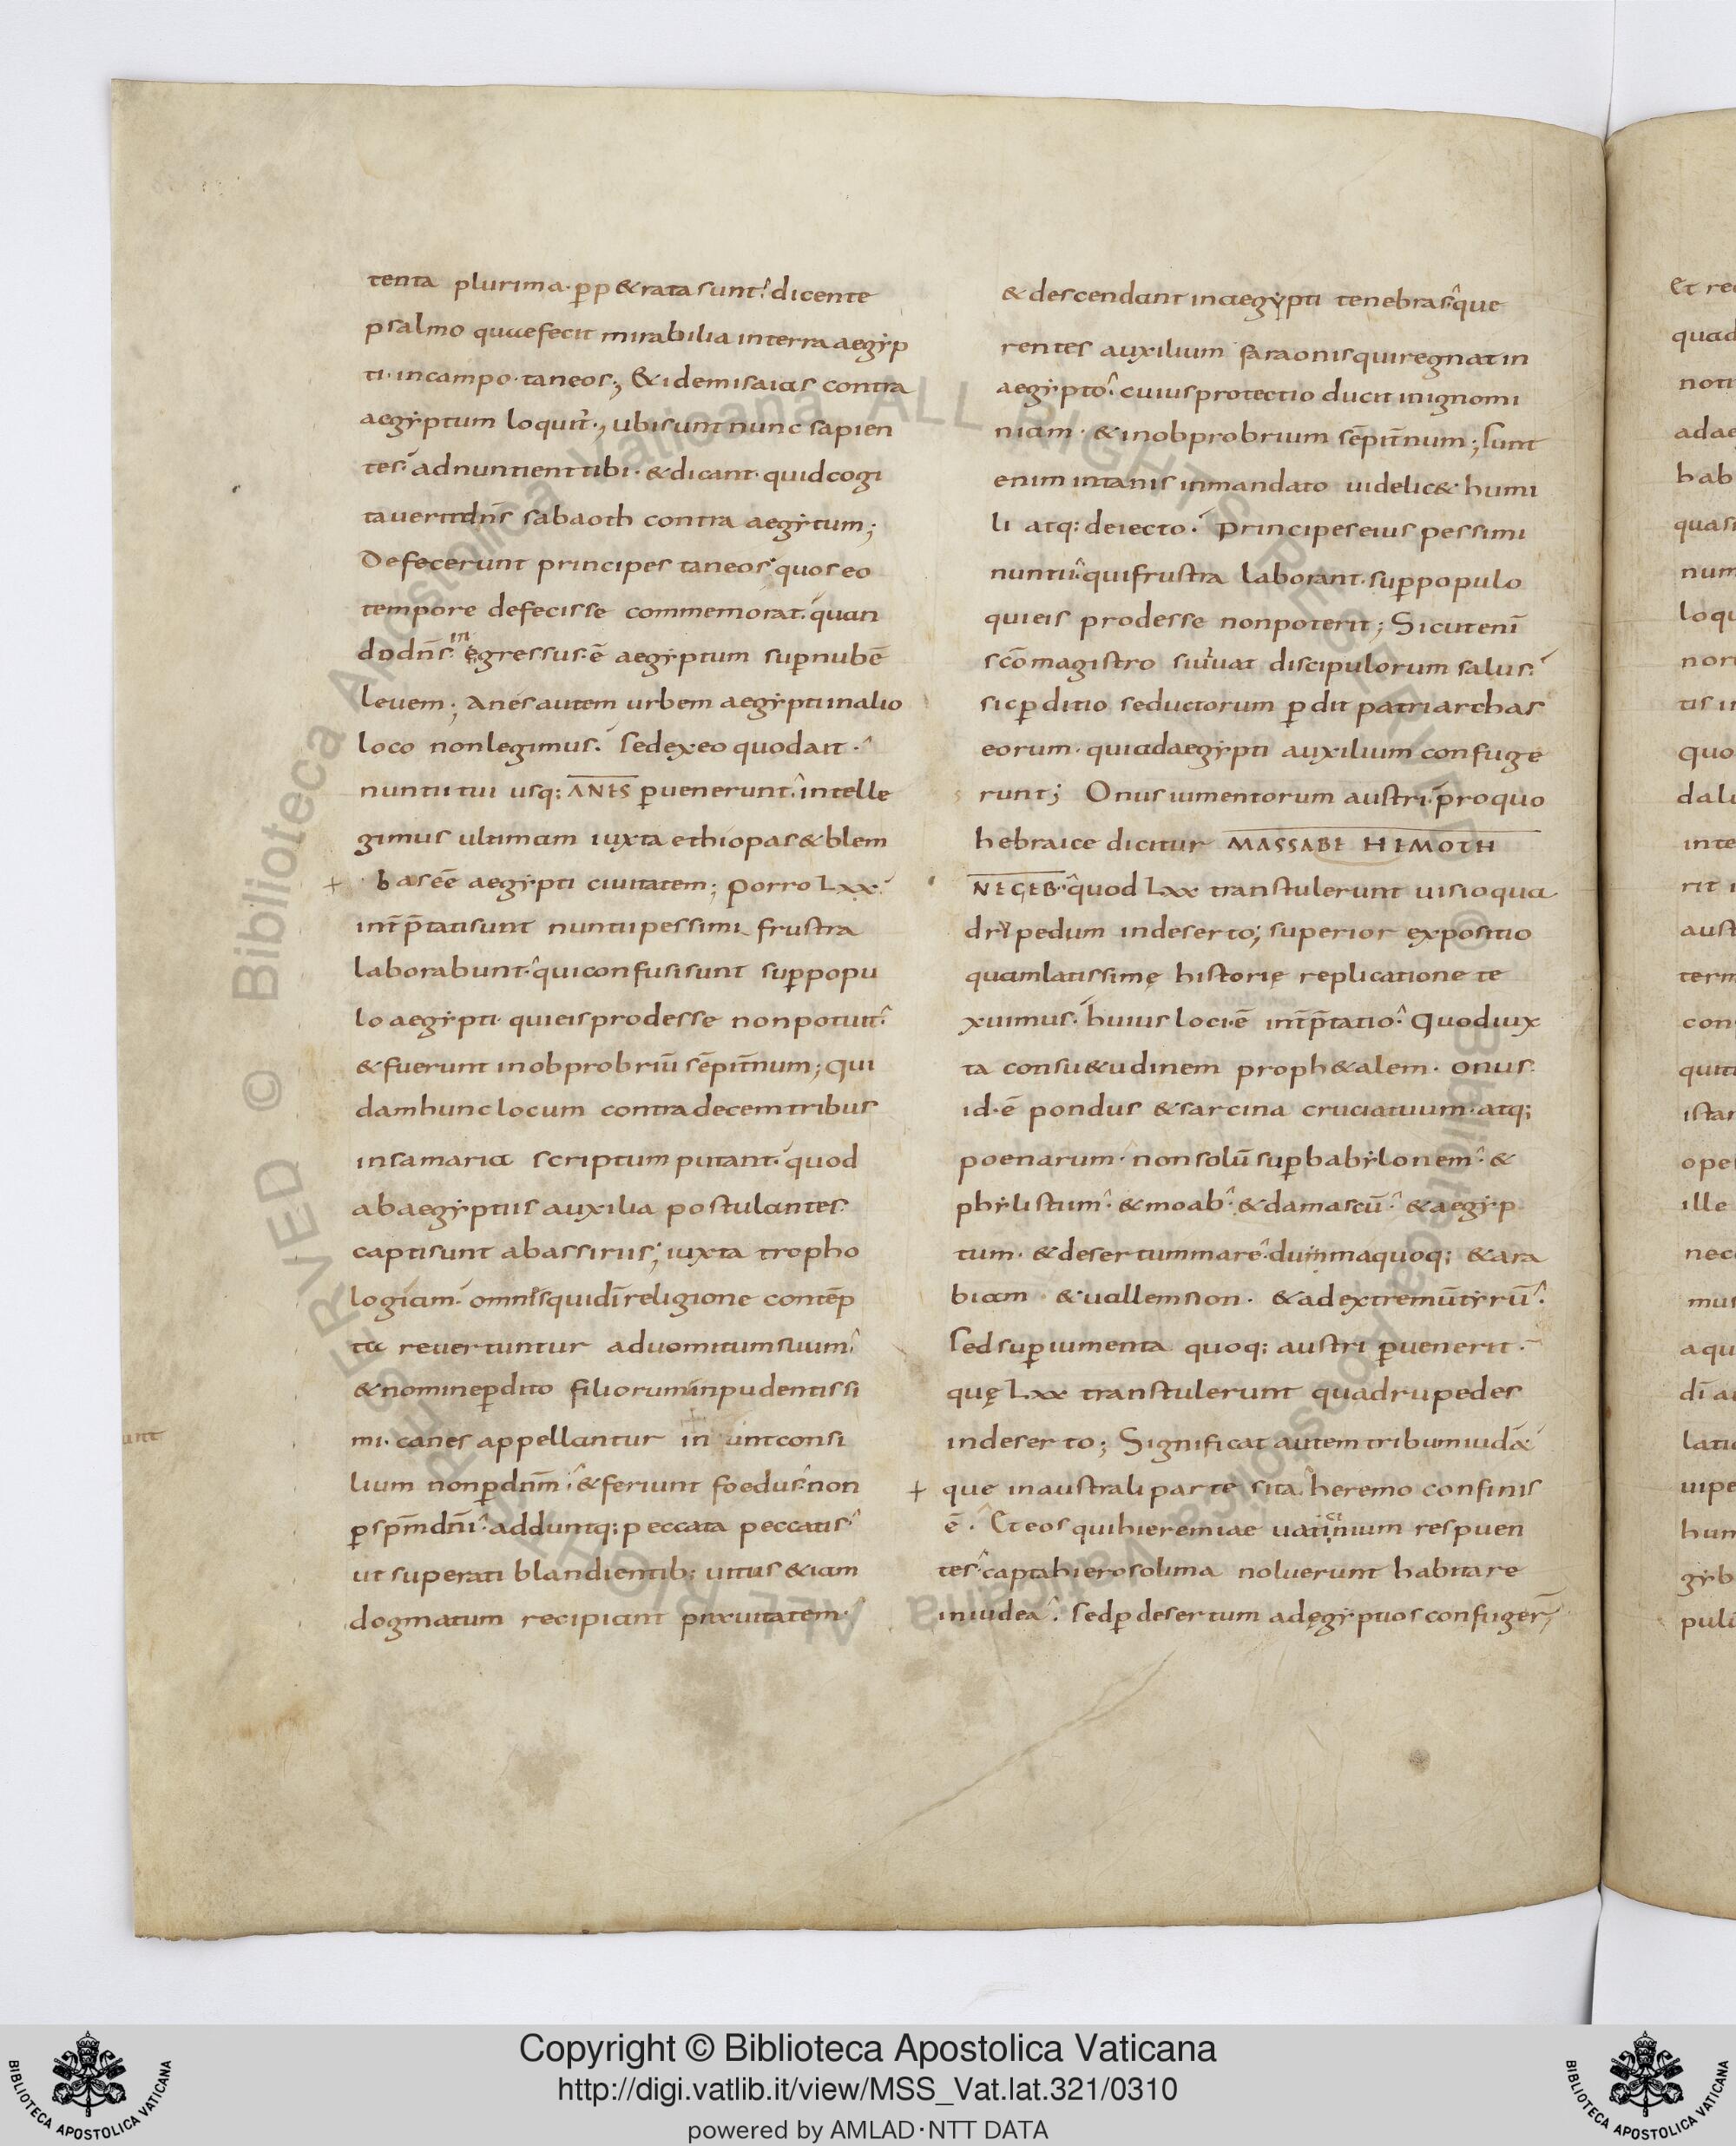 tenta plurima· p̄p&rata sunt; dicente
psalmo quae fecit mirabilia interra aegyp
ti· incampo· taneos; & idem isaias contra
aegyptum loquit̄·, ubi sunt nunc sapien
tes· adnuntient tibi· & dicant· quid cogi
tauerit dn̄s sabaoth contra aegytum;
Defecerunt principes taneos· quos eo
tempore defecisse commemorat· quan
do dn̄s· ingressus·ē aegyptum sup̄ nubē
leuem; Anes autem urbem aegypti inalio
loco non legimus· sed exeo quod ait·
nuntii tui usq: ANES p̄uenerunt· intelle
gimus ultimam iuxta ethiopas & blem
+ bas eē aegypti ciuitatem; Porro Lxx·
int̄p̄tati sunt nuntii pessimi frustra
laborabunt· qui confusi sunt sup̄ popu
lo aegypti· qui eis prodesse non potuit·
& fuerunt in obprobriū sēpit̄num; Qui
dam hunc locum contra decem tribus
insamaria scriptum putant· quod
ab aegyptiis auxilia postulantes·
capti sunt ab assiriis; iuxta tropho
logiam· omnis qui dī religione contēp
ta reuertuntur ad uomitum suum·
& nomine p̄dito filiorum inpudentissi
mi· canes appellantur in unt consi
lium non p̄ dnm̄· & feriunt foedus· non
p̄ sp̄m dnī· adduntq: peccata peccatis·
ut superati blandientib: uitiis & iam
dogmatum recipiant prauitatem·
& descendant in aegypti tenebras· que
rentes auxilium faraonis qui regnat in
aegypto· cuius protectio ducit in ignomi
niam· & in obprobrium sēpit̄num; sunt
enim intanis in mandato uidelic& humi
li atq: deiecto· Principes eius pessimi
nuntii· qui frustra laborant· sup̄ populo
qui eis prodesse non poterit; Sicut enī
scō magistro suuat discipulorum salus·
sic p̄ditio seductorum p̄dit patriarchas
eorum· qui ad aegypti auxilium confuge
runt; Onus iumentorum austri· pro quo
hebraice dicitur MASSABE HEMOTH
NEGEB· quod Lxx transtulerunt uisio qua
drypedum indeserto; superior expositio
quam latissimę historię replicatione te
xuimus· huius loci·ē int̄p̄tatio· Quod iux
ta consu&udinem proph&alem· onus·
id·ē pondus & sarcina cruciatuum· atq;
poenarum· non solū sup̄ babylonem· &
phylistiim· & moab· & damascū· & aegyp
tum· & desertum mare· duinma quoq; & ara
biam· & uallem sion· & ad extremū tyrū·
sed sup̄ iumenta quoq: austri p̄uenerit·
quę Lxx transtulerunt quadrupedes
indeserto; Significat autem tribum iuda
+ que in australi parte sita heremo confinis
ē· Et eos qui hieremiae uaticinium respuen
tes· capta hierosolima noluerunt habitare
in iudea· sed p̄ desertum ad ęgyptios confuger̄
unt
Copyright © Biblioteca Apostolica Vaticana
http://digi.vatlib.it/view/MSS_Vat.lat.321/0310
powered by AMLAD·NTT DATA
BIBLIOTECA APOSTOLICA VATICANA
BIBLIOTECA APOSTOLICA VATICANA